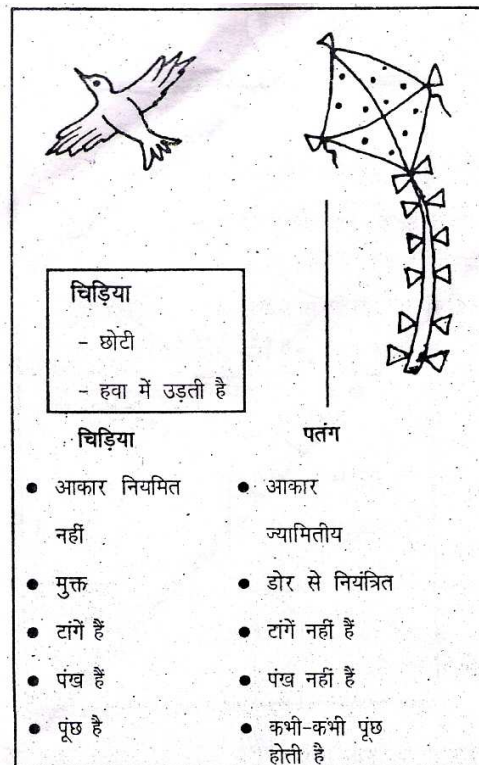 चिड़िया
- छोटी
- हवा में उड़ती है
चिड़िया
• आकार नियमित
नहीं
• मुक्त
• टांगें हैं
• पंख हैं
• पूंछ है
पतंग
• आकार
ज्यामितीय
• डोर से नियंत्रित
• टांगें नहीं हैं
• पंख नहीं हैं
• कभी-कभी पूंछ
होती है